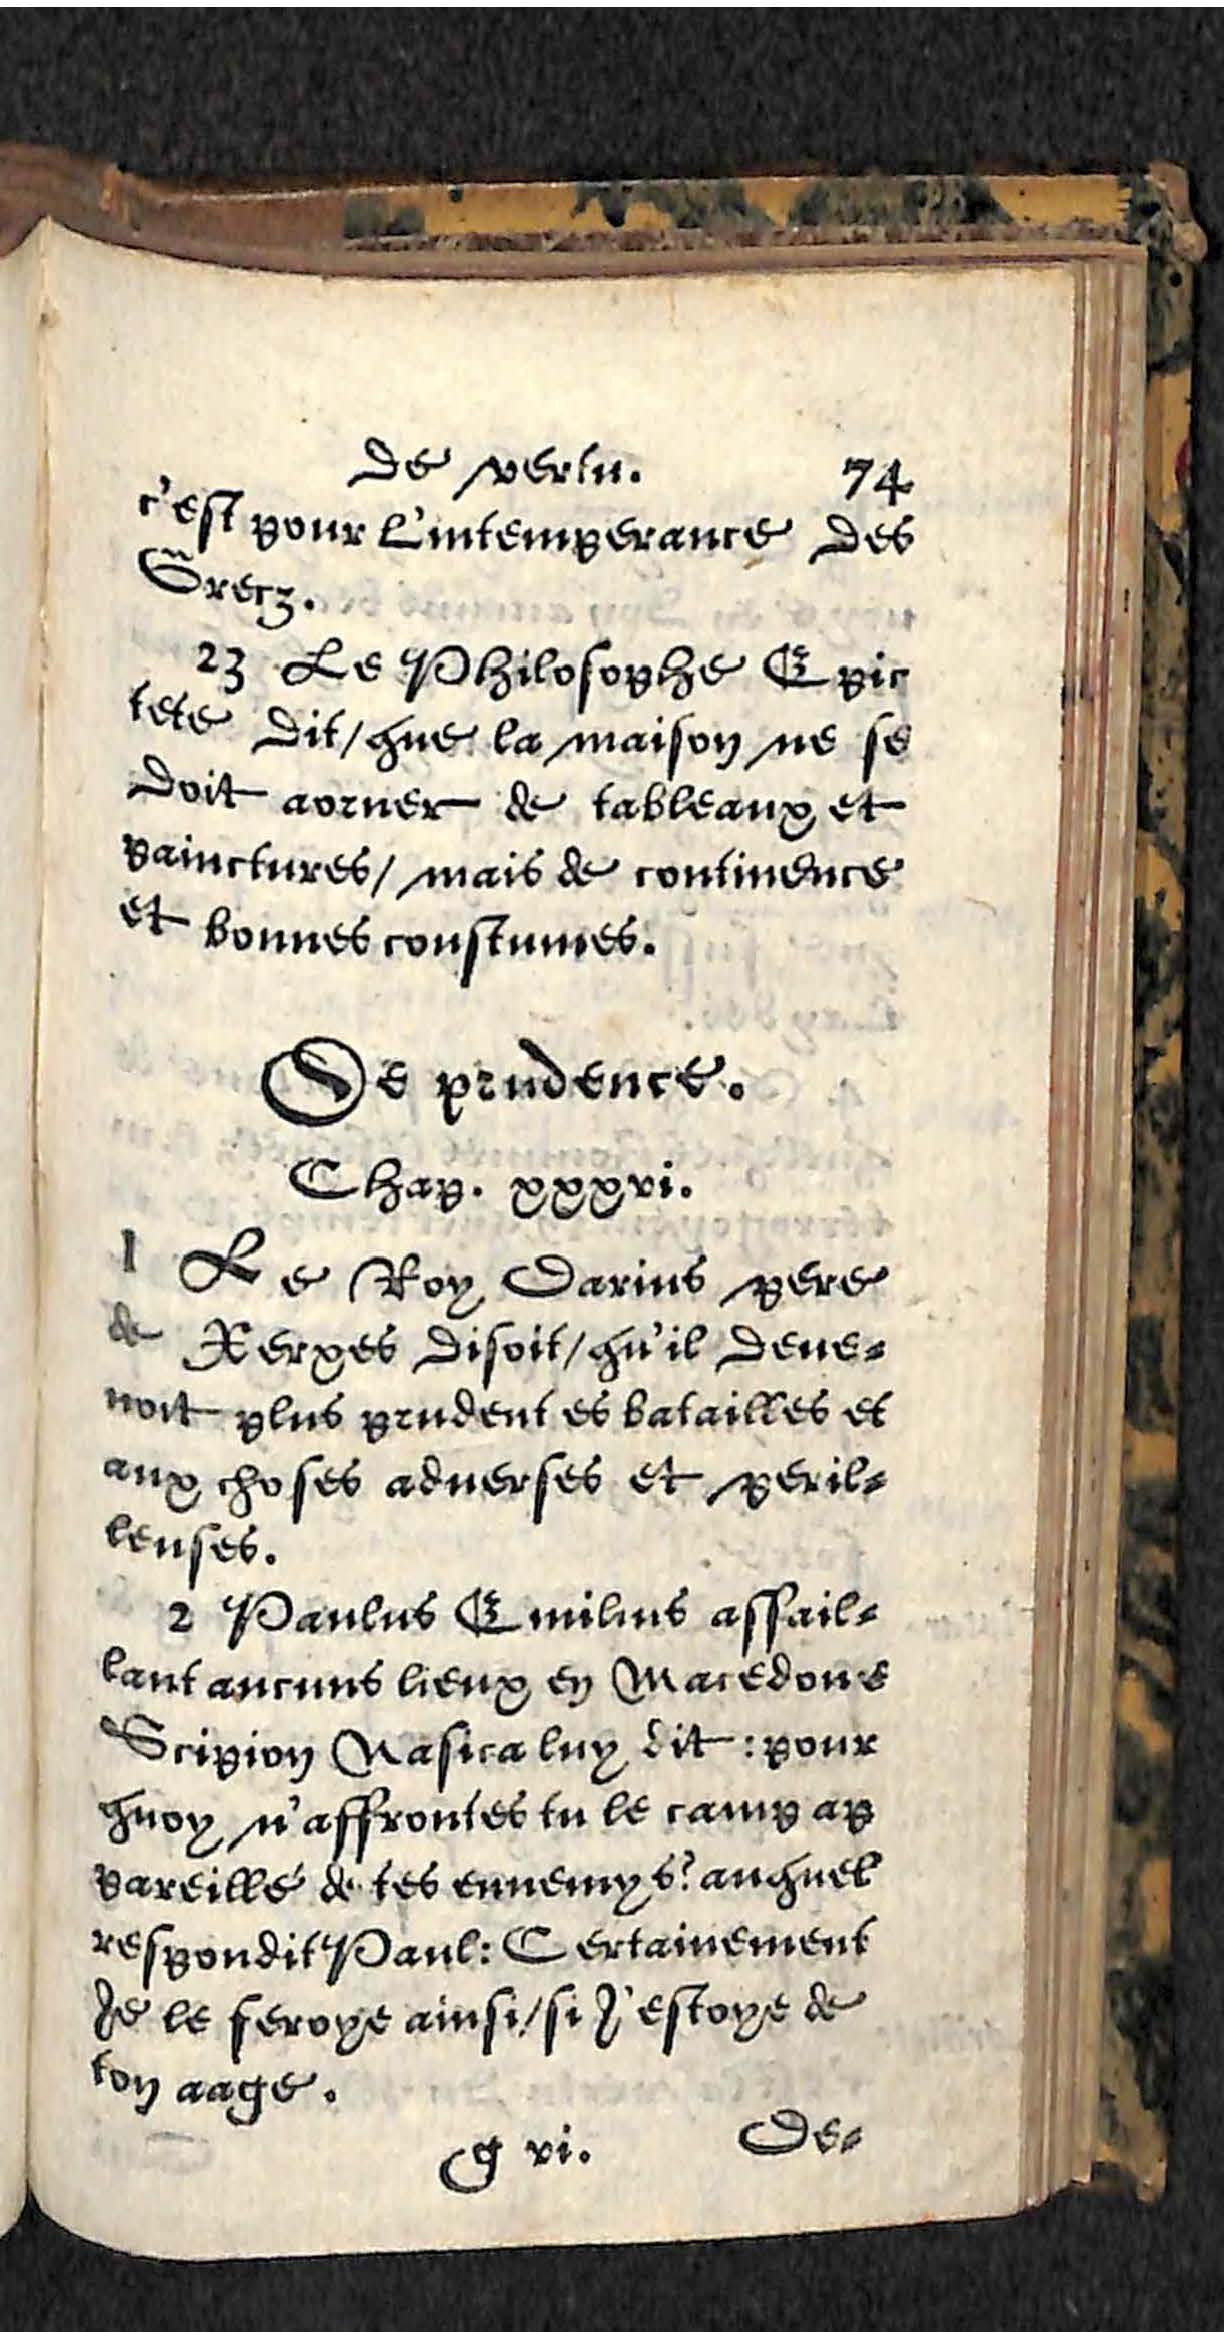 de vertu. 74
c'est pour l'intemperance des
Grecz.
23 Le Philosophe Epic
tete dit/que la maison ne se
doit aorner de tableaux et
painctures/ mais de continence
et bonnes coustumes.
De prudence.
Chap. xxxvi.
1 Le Roy Darius pere
de Xerxes disoit/qu'il deue-
noit plus prudent es batailles et
aux choses aduerses et peril-
leuses.
2 Paulus Emilius assail-
lant aucuns lieux en Macedone
Scipion Nasica luy dit : pour
quoy n'affrontes tu le camp ap
pareillé de tes ennemys? auquel
respondit Paul: Certainement
Je le feroye ainsi/si J'estoye de
ton aage.
g vi. De-